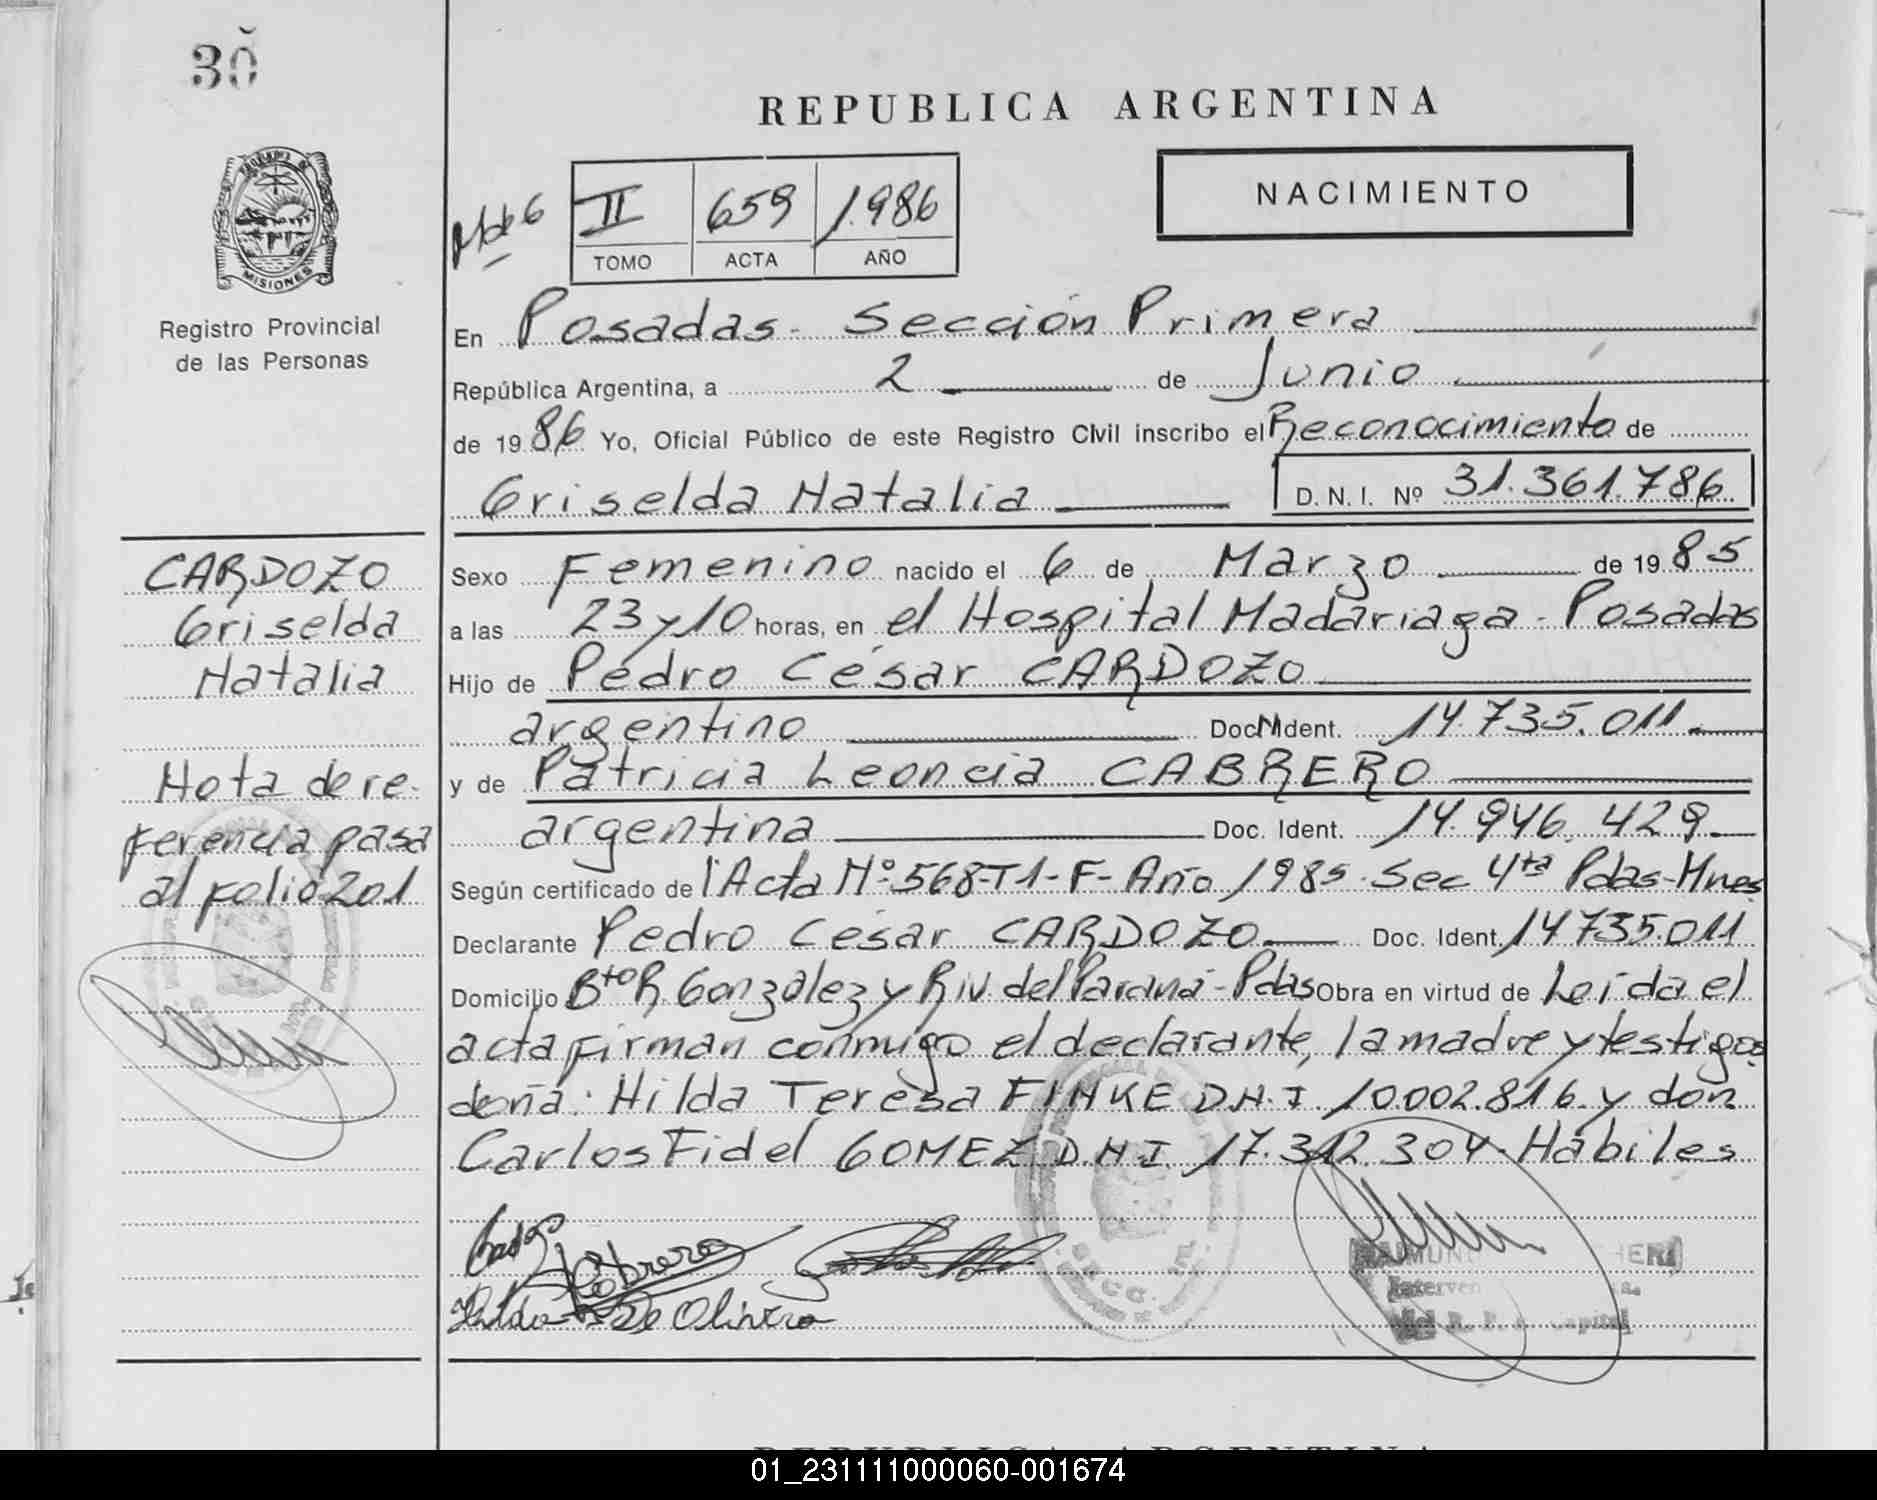 30
REPUBLICA ARGENTINA
NACIMIENTO
II 659 1.986
TOMO ACTA AÑO
MISIONES
Registro Provincial
de las Personas
En Posadas - Sección Primera
República Argentina, a 2 de Junio
de 1986 Yo, Oficial Público de este Registro Civil inscribo el Reconocimiento de
Griselda Natalia D. N. I. Nº 31.361.786
CARDOZO
Griselda
Natalia
Nota de re-
ferencia pasa
al folio 201
Sexo Femenino nacido el 6 de Marzo de 1985
a las 23 y 10 horas, en el Hospital Madariaga - Posadas
Hijo de Pedro César CARDOZO
argentino Doc. Ident. 14.735.011
y de Patricia Leoncia CABRERO
argentina Doc. Ident. 14.946.429
Según certificado del Acta Nº 568-T1-F-Año 1985. Sec 4ta Pdas-Mnes
Declarante Pedro César CARDOZO Doc. Ident. 14735.011
Domicilio Bto R. González y Riv. del Paraná - Pdas Obra en virtud de Leída el
acta firman conmigo el declarante, la madre y testigos
doña: Hilda Teresa FINKE D.N.I. 10.002.816 y don
Carlos Fidel GOMEZ D.N.I. 17.312.304. Hábiles
Cabrero
Hilda De Olivera
01_231111000060-001674